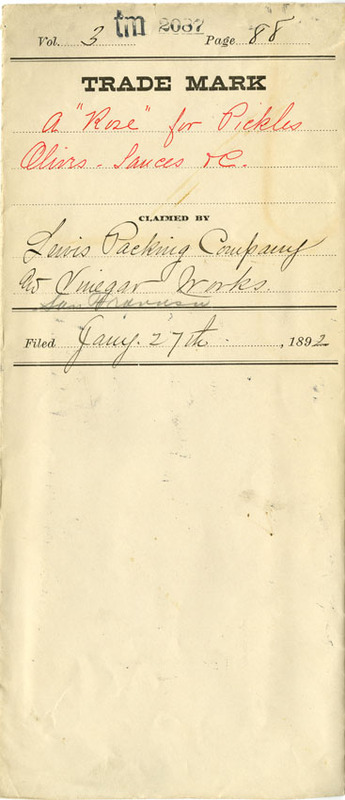 Vol. 3 tm 2087 Page 88
TRADE MARK
A "Rose" for Pickles
Olives - Sauces &C.
CLAIMED BY
Lewis Packing Company
Vinegar Works.
San Francisco
Filed Jany. 27th. , 1892